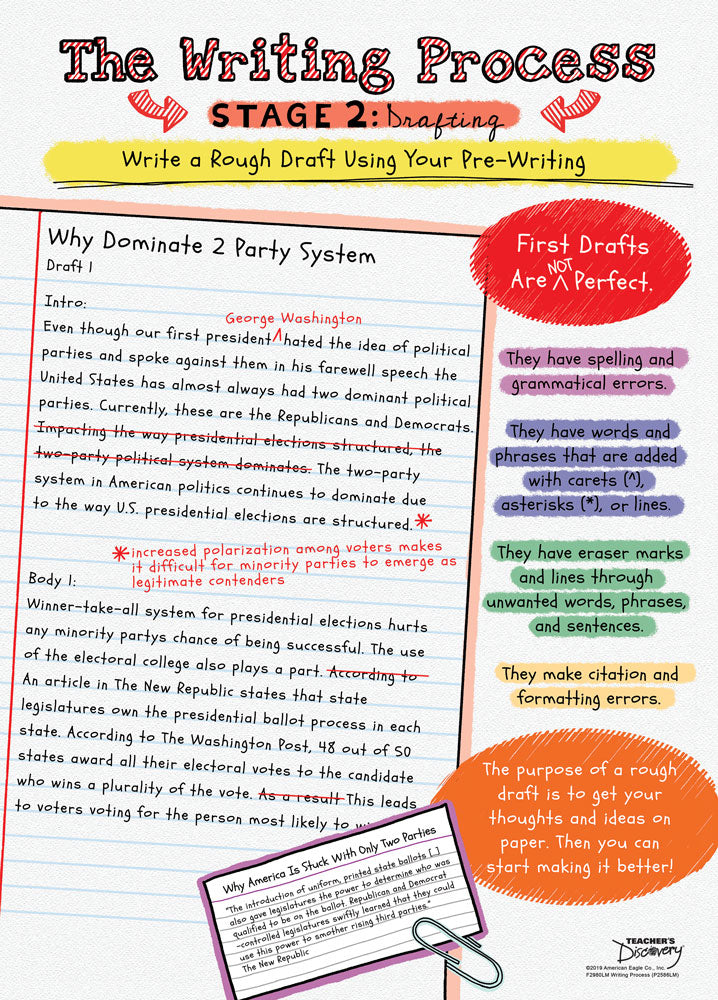 The Writing Process
STAGE 2: Drafting
Write a Rough Draft Using Your Pre-Writing
Why Dominate 2 Party System
Draft 1
Intro:
George Washington
Even though our first president ^ hated the idea of political
parties and spoke against them in his farewell speech the
United States has almost always had two dominant political
parties. Currently, these are the Republicans and Democrats.
Impacting the way presidential elections structured, the
two-party political system dominates. The two-party
system in American politics continues to dominate due
to the way U.S. presidential elections are structured.*
*increased polarization among voters makes
it difficult for minority parties to emerge as
legitimate contenders
Body 1:
Winner-take-all system for presidential elections hurts
any minority partys chance of being successful. The use
of the electoral college also plays a part. According to
An article in The New Republic states that state
legislatures own the presidential ballot process in each
state. According to The Washington Post, 48 out of 50
states award all their electoral votes to the candidate
who wins a plurality of the vote. As a result This leads
to voters voting for the person most likely to
Why America Is Stuck With Only Two Parties
"The introduction of uniform, printed state ballots [..]
also gave legislatures the power to determine who was
qualified to be on the ballot. Republican and Democrat
-controlled legislatures swiftly learned that they could
use this power to smother rising third parties."
The New Republic
First Drafts
NOT
Are ^ Perfect.
They have spelling and
grammatical errors.
They have words and
phrases that are added
with carets (^),
asterisks (*), or lines.
They have eraser marks
and lines through
unwanted words, phrases,
and sentences.
They make citation and
formatting errors.
The purpose of a rough
draft is to get your
thoughts and ideas on
paper. Then you can
start making it better!
TEACHER'S
Discovery
©2019 American Eagle Co., Inc.
F2980LM Writing Process (P2586LM)